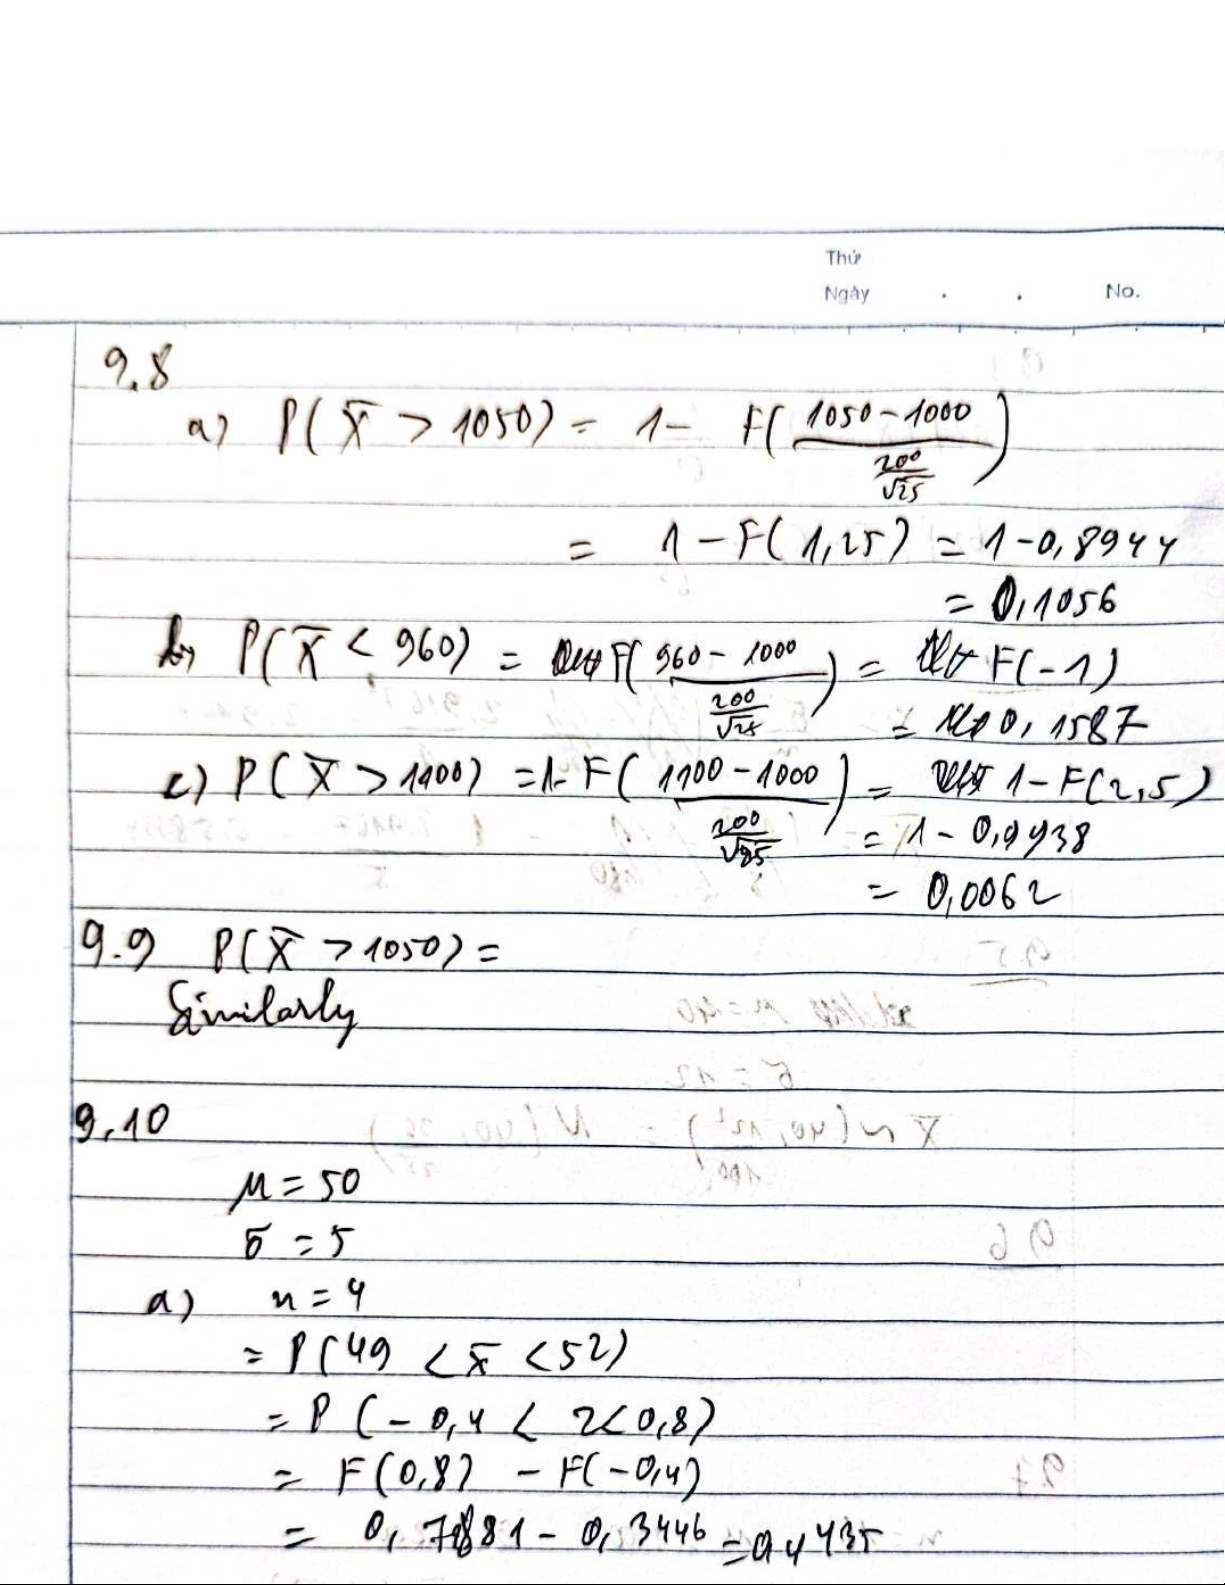 Thứ
Ngày . . No.
9.8
a) P(X̄ > 1050) = 1 - F((1050 - 1000)/(200/√25))
= 1 - F(1,25) = 1 - 0,8944
= 0,1056
b) P(X̄ < 960) = F((960 - 1000)/(200/√25)) = F(-1)
= 0,1587
c) P(X̄ > 1100) = 1 - F((1100 - 1000)/(200/√25)) = 1 - F(2,5)
= 1 - 0,9938
= 0,0062
9.9 P(X̄ > 1050) =
Similarly
9.10
μ = 50
σ = 5
a) n = 4
= P(49 < x̄ < 52)
= P(-0,4 < z < 0,8)
= F(0,8) - F(-0,4)
= 0,7881 - 0,3446 = 0,4435